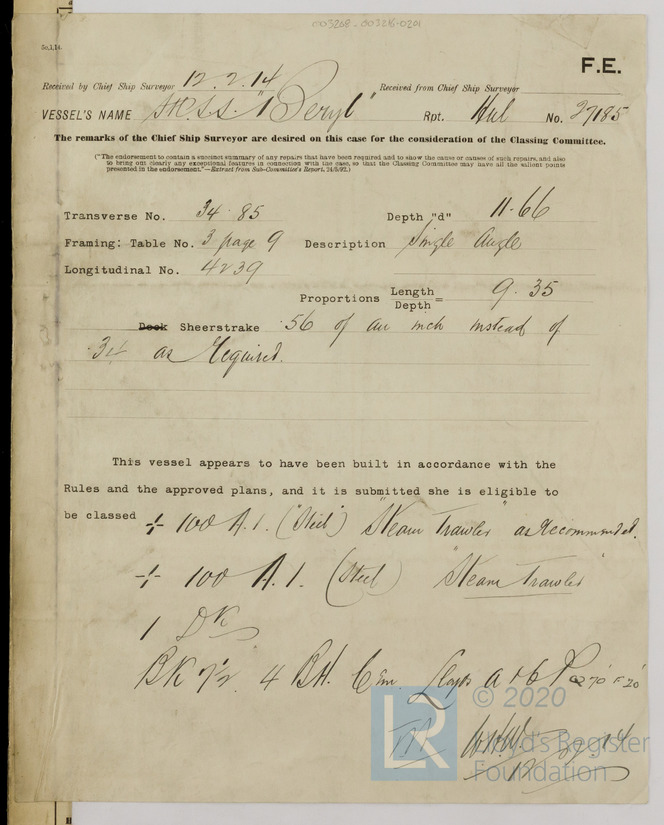 003268-003275-0201
5a,1,14.
F.E.
Received by Chief Ship Surveyor 12.2.14 Received from Chief Ship Surveyor
VESSEL'S NAME "Beryl" Rpt. Hul No. 27185
The remarks of the Chief Ship Surveyor are desired on this case for the consideration of the Classing Committee.
("The endorsement to contain a succinct summary of any repairs that have been required and to show the cause or causes of such repairs, and also
to bring out clearly any exceptional features in connection with the case, so that the Classing Committee may have all the salient points
presented in the endorsement."—Extract from Sub-Committee's Report, 24/5/92.)
Transverse No. 34.85 Depth "d" 11.66
Framing: Table No. 3 page 9 Description Single Angle
Longitudinal No. 4239
Proportions Length/Depth = 9.35
Deck Sheerstrake .56 of an inch instead of
as Required.
This vessel appears to have been built in accordance with the
Rules and the approved plans, and it is submitted she is eligible to
be classed ✠ 100 A.1. (Steel) "Steam Trawler" as Recommended.
✠ 100 A.1. (Steel) "Steam Trawler"
1 DK
BK 7½ 4 BH. Cem. Lloyds A & CP
© 2020
LR
Lloyd's Register
Foundation